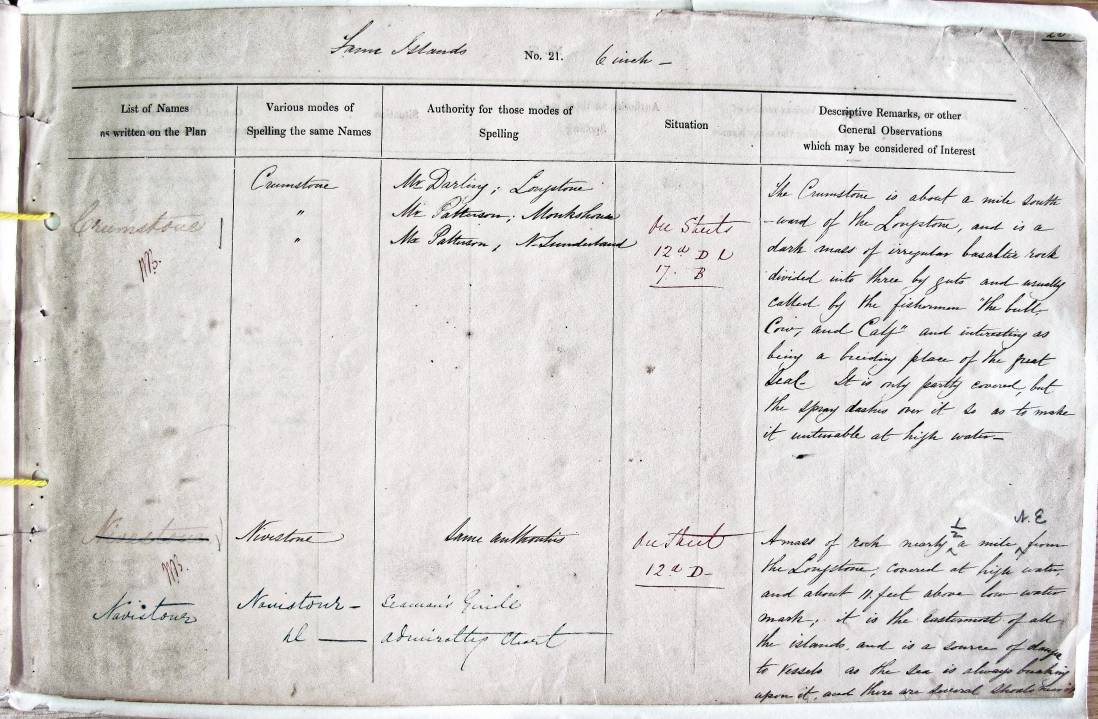 Farne Islands No. 21. 6 inch -
List of Names
as written on the Plan
Various modes of
Spelling the same Names
Authority for those modes of
Spelling
Situation
Descriptive Remarks, or other
General Observations
which may be considered of Interest
Crumstone
Crumstone
"
"
Mr Darling; Longstone
Mr Patterson; Monkshouse
Mr Patterson, N. Sunderland
On Sheets
12a D
17. B
The Crumstone is about a mile south
-ward of the Longstone, and is a
dark mass of irregular basaltic rock
divided into three by guts and usually
called by the fishermen "the bull,
Cow, and Calf" and interesting as
being a breeding place of the great
Seal. It is only partly covered, but
the spray dashes over it so as to make
it untenable at high water -
Nivestone
Same authorities
On Sheet
12a D -
Navistour
Navistour -
do
Seaman's Guide
Admiralty Chart
A mass of rock nearly 1/2 a mile N.E from
the Longstone; covered at high water,
and about 11 feet above low water
mark; it is the easternmost of all
the islands, and is a source of danger
to vessels as the sea is always breaking
upon it, and there are several shoals